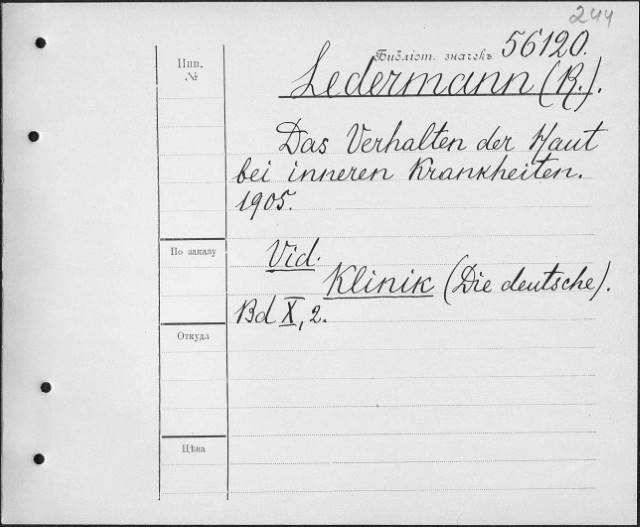 244
Инв.
№
Библіот. значекъ 56120.
Ledermann (R.).
Das Verhalten der Haut
bei inneren Krankheiten.
1905.
По заказу
Vid.
Klinik (Die deutsche).
Bd X, 2.
Откуда
Цѣна